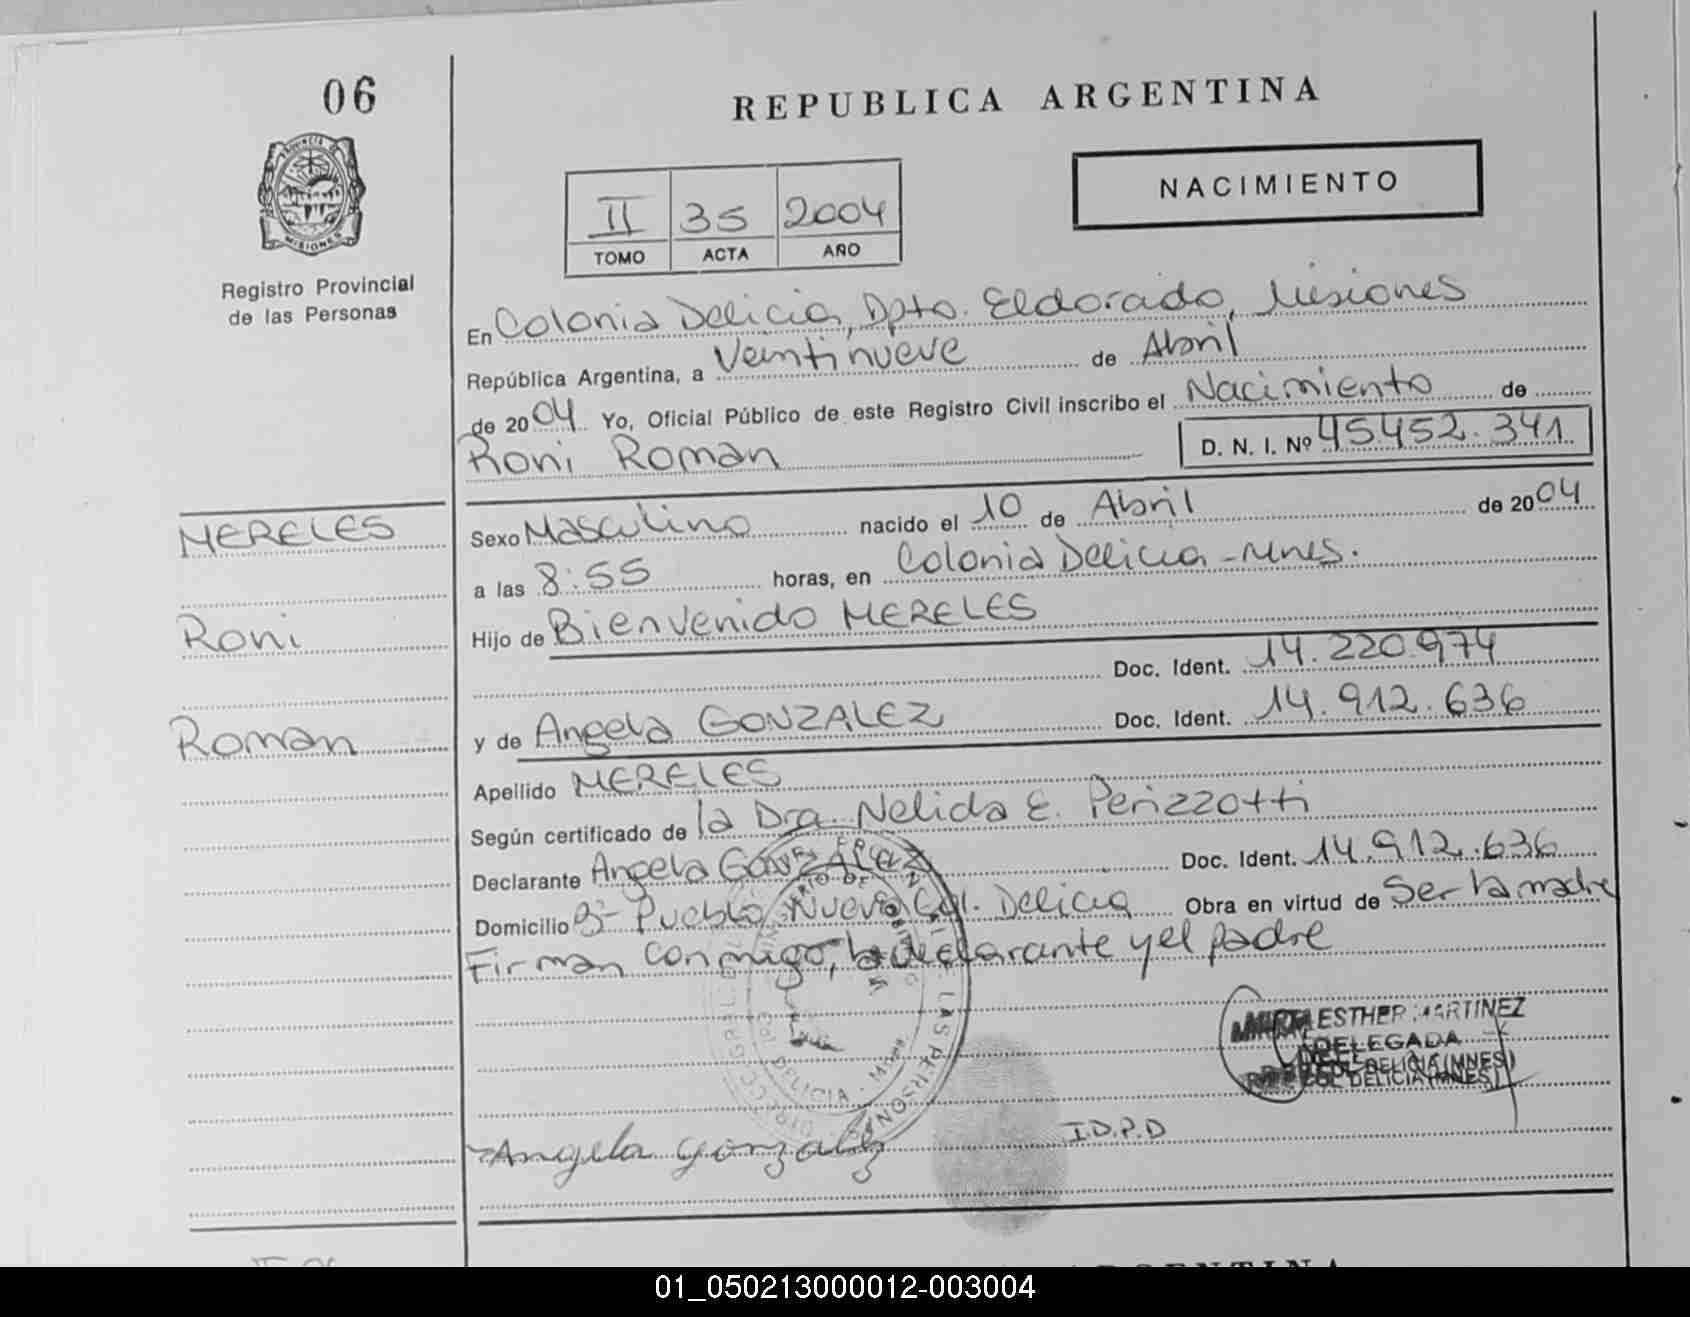 06
REPUBLICA ARGENTINA
PROVINCIA DE
MISIONES
NACIMIENTO
II 35 2004
TOMO ACTA AÑO
Registro Provincial
de las Personas
En Colonia Delicia, Dpto. Eldorado, Misiones
República Argentina, a Veintinueve de Abril
de 2004 Yo, Oficial Público de este Registro Civil inscribo el Nacimiento de
Roni Roman D. N. I. Nº 45.452.341
MERELES
Roni
Roman
Sexo Masculino nacido el 10 de Abril de 2004
a las 8:55 horas, en Colonia Delicia - Mnes.
Hijo de Bienvenido MERELES
Doc. Ident. 14.220.974
y de Angela GONZALEZ Doc. Ident. 14.912.636
Apellido MERELES
Según certificado de la Dra. Nelida E. Perizzotti
Declarante Angela GONZALEZ Doc. Ident. 14.912.636
Domicilio Bº Pueblo Nuevo Col. Delicia Obra en virtud de Ser la madre
Firman conmigo, la declarante y el padre
LAS PERSONAS
DELICIA
ESTHER MARTINEZ
DELEGADA
COL DELICIA (MNES)
Angela gonzalez
I.D.P.D
ARGENTINA
01_050213000012-003004